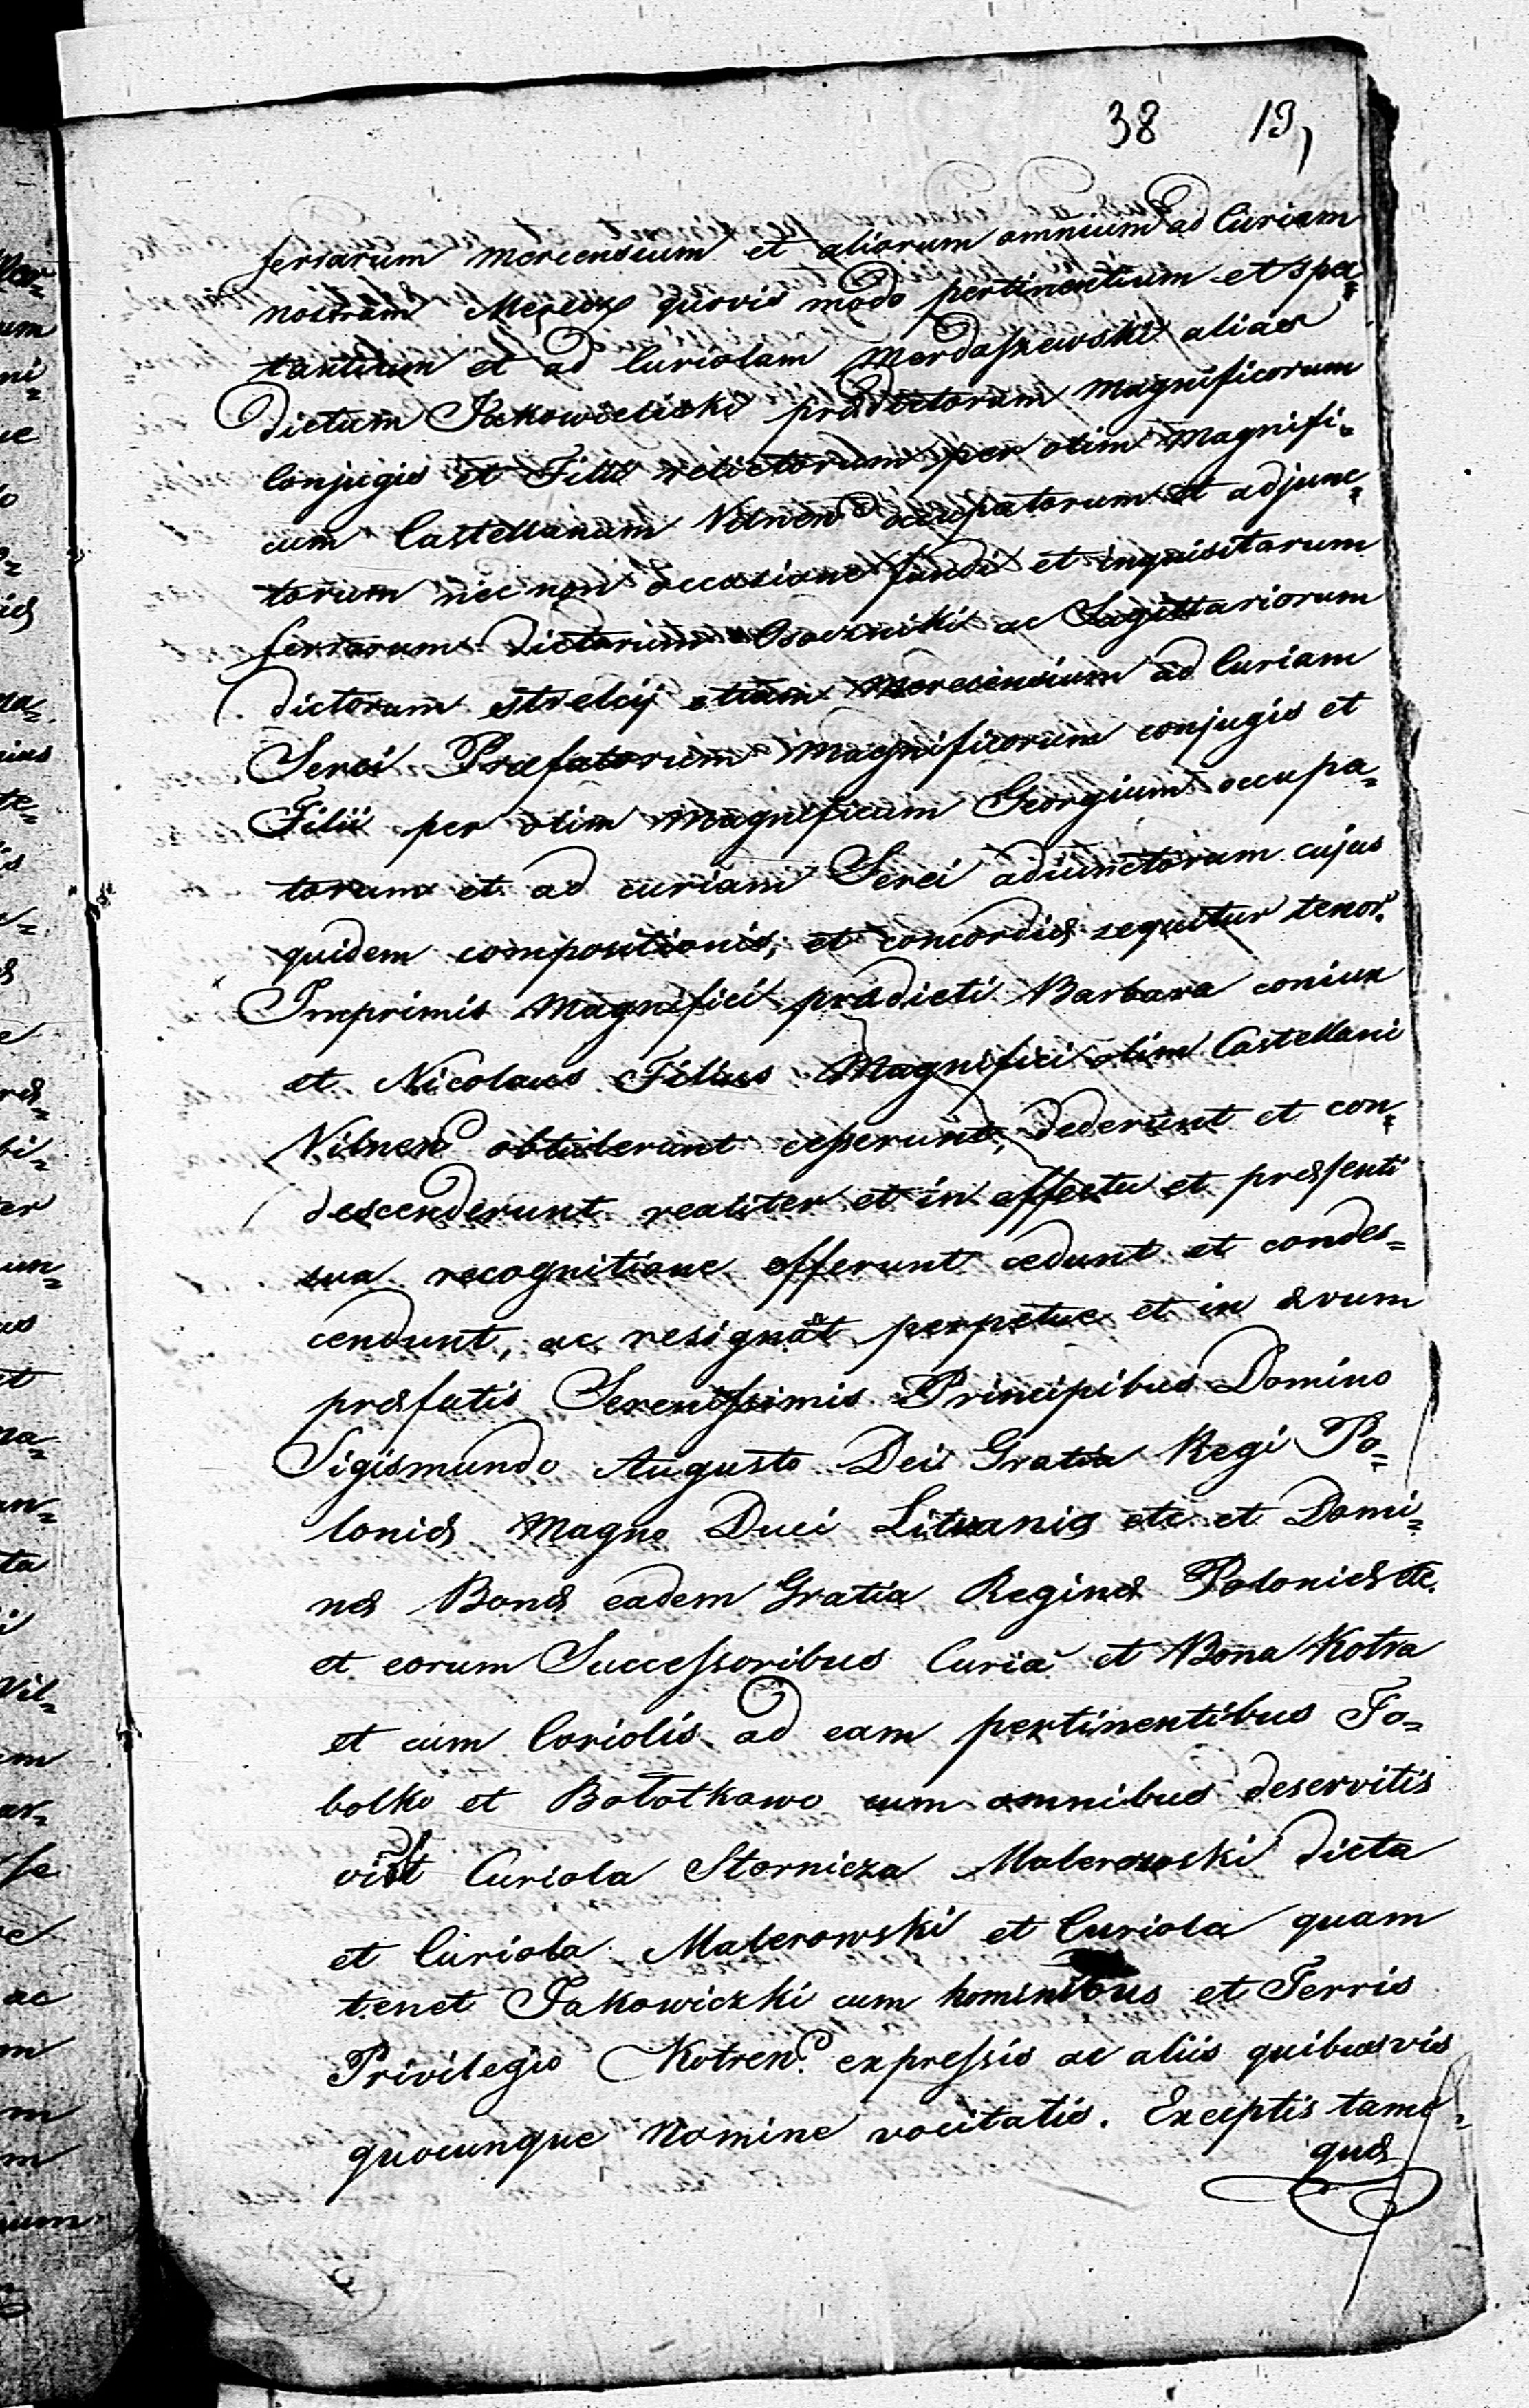 38 19,
ferrarum merecensium et aliorum omnium ad Curiam
nostram Merecz quovis modo pertinentium et spec=
tantium et ad Curiolam Merdaszewski alias
dictum Jakowieliski prædictorum magnificorum
Conjugis et Filii relictorum per olim Magnifi=
cum Castellanum Vilnen occupatorum et adjunc=
torum nec non occasione fundi et inquisitarum
ferrarum dictorum Osoczniki ac Sagittariorum
dictorum strelcij etiam Merecensium ad Curiam
Serei Præfatorum Magnificorum conjugis et
Filii per olim Magnificum Georgium occupa=
torum et ad curiam Serei adiunctorum cujus
quidem compositionis, et concordiæ sequitur tenor.
Imprimis Magnifici prædicti Barbara coniux
et Nicolaus Filius Magnifici olim Castellani
Vilnen obtulerunt cesserunt, dederunt et con=
descenderunt realiter et in effectu et præsenti
sua recognitione offerunt cedunt et condes=
cendunt, ac resignāt perpetue et in ævum
præfatis Serenissimis Principibus Domino
Sigismundo Augusto Dei Gratia Regi Po=
loniæ Magno Duci Lituaniæ etc et Domi=
næ Bonæ eadem Gratia Reginæ Poloniæ etc.
et eorum Successoribus Curia et Bona Kotra
et cum Coriolis ad eam pertinentibus To=
bolko et Bołotkowo cum omnibus deservitis
vidt Curiola Stornicza Malerowski dicta
et Curiola Malerowski et Curiola quam
tenet Jakowiczki cum hominibus et Terris
Privilegio Kotren. expressis ac aliis quibusvis
quocunque Nomine vocitatis. Exceptis tame=
quæ